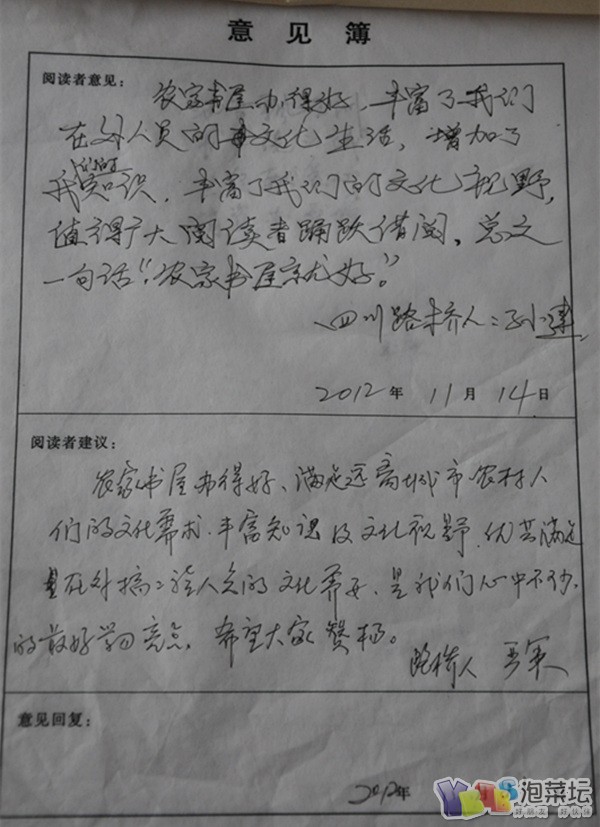 意见簿
阅读者意见：
农家书屋办得好，丰富了我们
在外人员的文化生活，增加了
我们的知识，丰富了我们的文化视野，
值得广大阅读者踊跃借阅，总之
一句话“农家书屋就是好。”
四川路桥人：孙小建
2012年 11月 14日
阅读者建议：
农家书屋办得好、满足远离城市农村人
们的文化需求、丰富知识及文化视野，尤其满足
在外搞工程人员的文化需要，是我们心中不少
的最好学习亮点，希望大家赞扬。
路桥人 王军
意见回复：
2012年
YBTBS泡菜坛